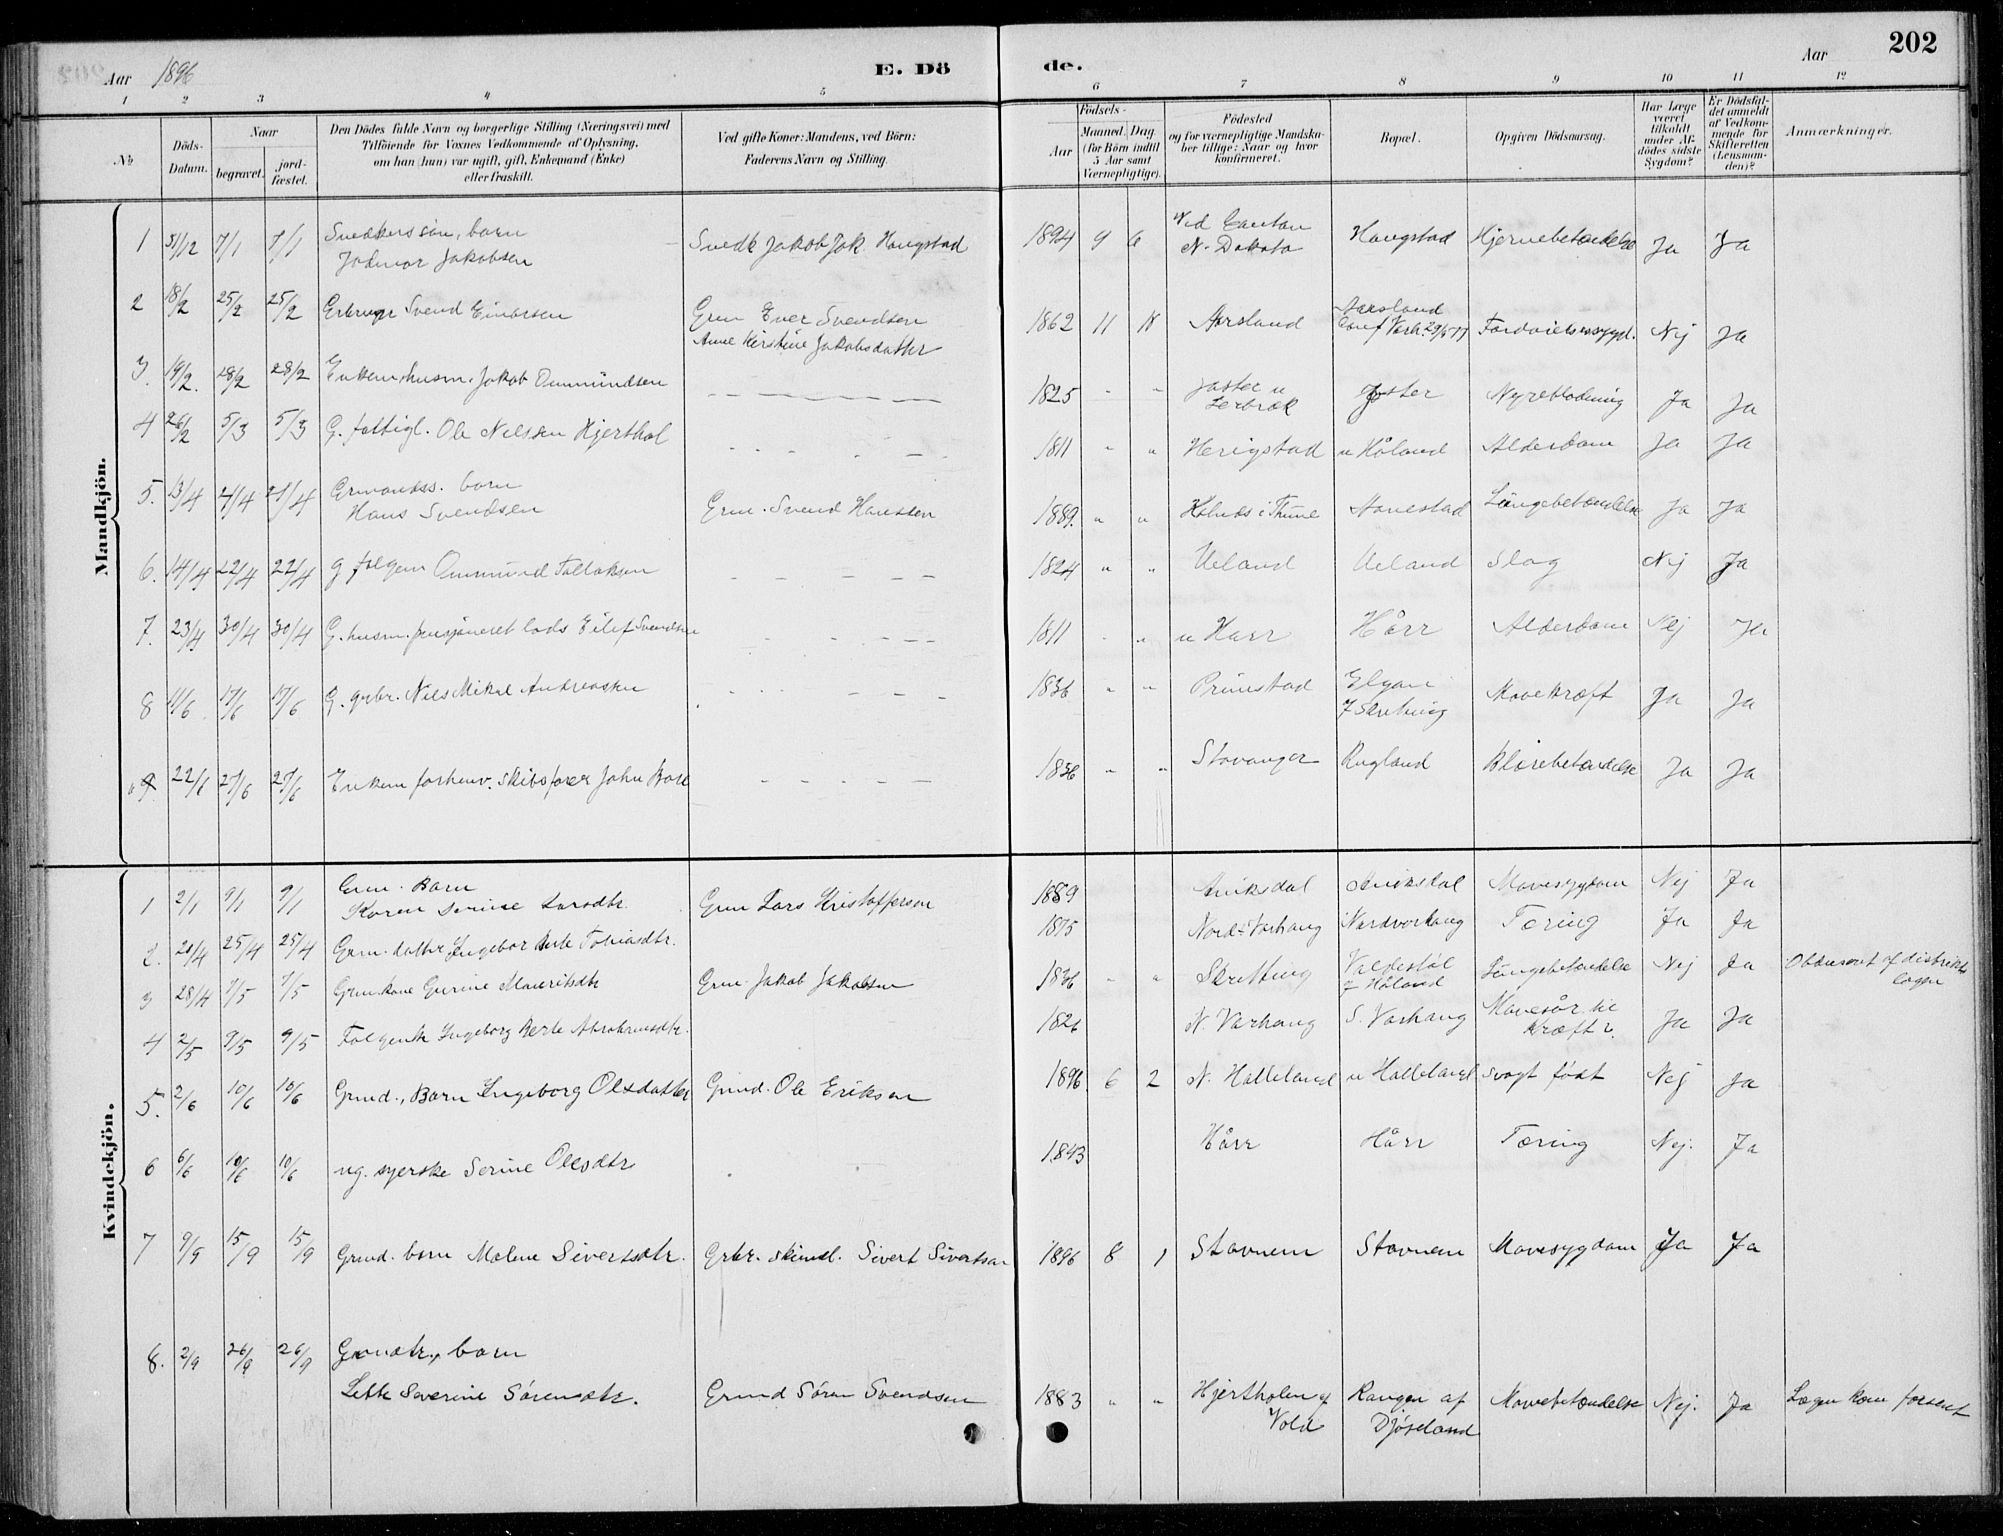 Aar 1896
E. Dö
de.
Aar
202
1 2 3 4 5 6 7 8 9 10 11 12
No
Döds-
Datum.
Naar
begravet.
jord-
fæstet.
Den Dödes fulde Navn og borgerlige Stilling (Næringsvei) med
Tilföiende for Voxnes Vedkommende af Oplysning,
om han (hun) var ugift, gift, Enkemand (Enke)
eller fraskilt.
Ved gifte Koner: Mandens, ved Börn:
Faderens Navn og Stilling.
Födsels-
Aar
Maaned. Dag.
(for Börn indtil
5 Aar samt
Værnepligtige).
Födested
og for værnepligtige Mandska-
ber tillige: Naar og hvor
konfirmeret.
Bopæl.
Opgiven Dödsaarsag.
Har Læge
været
tilkaldt
under Af-
dödes sidste
Sygdom?
Er Dödsfal-
det anmeldt
af Vedkom-
mende for
Skifteretten
(Lensman-
den)?
Anmærkninger.
Mandkjön.
1 31/12 7/1 7/1 Snedkers søn, barn
Jakobsen
Snedk Jakob Jak. Haugstad 1894 9 6 Ved Canton
N. Dakota
Haugstad Hjernebetændelse Ja Ja
2 18/2 25/2 25/2 Svend Einarsen
Grm Svendsen
Anne Kirstine Jakobsdatter
1862 11 18 Aarsland Aarsland
Nej Ja
3. 19/2. 28/2 28/2 Enkem. husm. Jakob Ommundsen 1825 " " Nyreblødning Ja Ja
4 26/2 5/3 5/3 G. fattigl. Ole Nilssen Hjerthol 1811 " " Herigstad u Håland Alderdom Ja Ja
5. 13/4 21/4 21/4 Grmands. barn
Hans Svendsen
Grm. Svend Hanssen 1889. " " Hanestad Lungebetændelse Ja Ja
6. 14/4 22/4 22/4 g folgem Ommund Tollaksen 1824 " " Ueland Ueland Slag Nej Ja
7. 23/4 30/4 30/4 G. husm. pensjoneret lods Eilif Svendsen 1811 " " u Harr Hårr Alderdom Nej Ja
8 11/6 17/6 17/6 G. grbr. Nils Mikal Andreassen 1836 " " Prinstad Mavekræft Ja Ja
9. 22/6 27/6 27/6 Enkem forhenv. skibsfører John 1836 " " Stavanger Rugland Blærebetændelse Ja Ja
Kvindekjön.
1 2/1 9/1 9/1 Grm. Barn
Karen Serine Larsdtr.
Grm Lars Kristoffersen 1889 Aniksdal Aniksdal Mavesygdom Nej Ja
2. 20/4 25/4 25/4 Grm. datter Ingebor Berte Tobiasdtr. 1875 Nord-Varhaug Nordvarhaug Tæring Ja Ja
3 28/4 7/5 7/5 Grm. kone Gurine Mauritsdtr Grm. Jakob Jakobsen 1836 " " Skretting
Håland
Lungebetændelse Nej Ja
4 2/5 9/5 9/5 Folgenk Ingeborg Berte Abrahamsdtr. 1826 N. Varhaug S. Varhaug Mavesår
Kræft
Ja Ja
5. 2/6 10/6 10/6 Grmd., Barn Ingeborg Olsdatter Grmd. Ole Eriksen 1896 6 2 N. Halleland u Halleland svagt født Nej Ja
6 6/6 10/6 10/6 ug. syerske Serine Olesdtr 1843 Hårr Hårr Tæring Nej. Ja
7 9/9 15/9 15/9 Grmd. barn Malene Sivertsdtr. Grbr. Sivert Sivertsen 1896 8 1 Stavnem Stavnem Mavesygdom Ja Ja
8. 2/9 26/9 26/9 Grmdtr., barn
Severine Sørensdtr.
Grmd Søren Svendsen 1883 " " Hjertholen af
Vold
af
Djøseland
Mavebetændelse Nej. Ja Lægen kom forsent